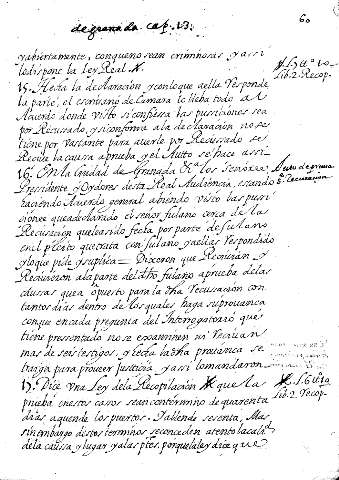 de granada cap. 13.
60
yabiertamente, conque no sean criminosas y assi
lo dispone la Ley Real A.
A l. 1 tit.º 10
lib. 2. Recop.
15. Hecha la declaraçion y con lo que a ella Responde
la parte, el escrivano de Camara lo lleba todo al
Acuerdo donde visto si confiessa las pusiçiones sea
por Recusado, y si conforme a la declaraçion no se
tiene por vastante para averle por Recussado se
Reciue la caussa aprueba y el Autto se haçe assi
16. En la Ciudad de Granada &ª los señores
Auto de prueua
Presidente y Oydores desta Real Audiençia, estando
E. Recusaçion
haçiendo Acuerdo general abiendo visto las pusi
çiones que a declarado el señor fulano çerca de la
Recussaçion que le a sido fecha por parte de fulano
en el pleyto que trata con fulano y a ellas Respondido
y lo que pide y suplica = Dixeron que Reçiuian y
Reçiuieron a la parte del dho fulano aprueba de las
caussas que a opuesto para la dha Recusaçion con
tantos dias dentro de los quales haga su prouança
conque en cada pregunta del Interrogatorio que
tiene presentado no se examinen ni Reçiuan
mas de seis testigos, y fecta la dha prouança se
traiga para prouer Justiçia y assi lo mandaron
17. Diçe Una Ley de la Recopilaçion A que la
A l. 6 tit. 10
lib. 2. Recop.
prueba en estos casos sea con término de quarenta
dias aquende los puertos. Y allende sesenta, Mas
sin embargo destos terminos se conceden atento la calid.
de la caussa y lugar y a las ptes. porque la ley diçe que